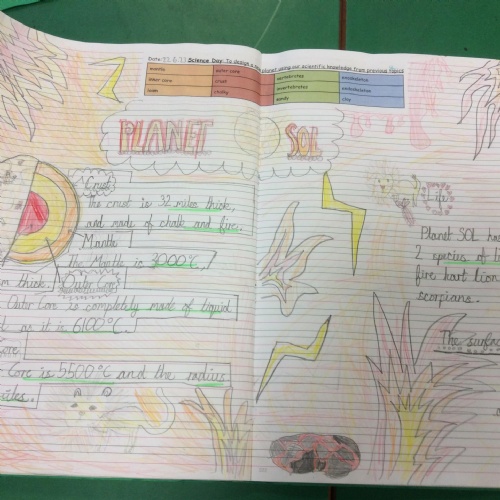 Science Day: To design a planet using our scientific knowledge from previous topics
mantle outer core vertebrates
inner core crust invertebrates endoskeleton
loam chalky sandy clay
PLANET SOL
Crust
The crust is 32 miles thick,
and made of chalk and fire.
Mantle
The Mantle is 3000°C,
thick.
Outer Core
Outer Core is completely made of liquid
as it is 6100°C.
Core
Core is 5500°C and the radius
Planet SOL has
2 species of
fire hart lion
scorpians.
The surface